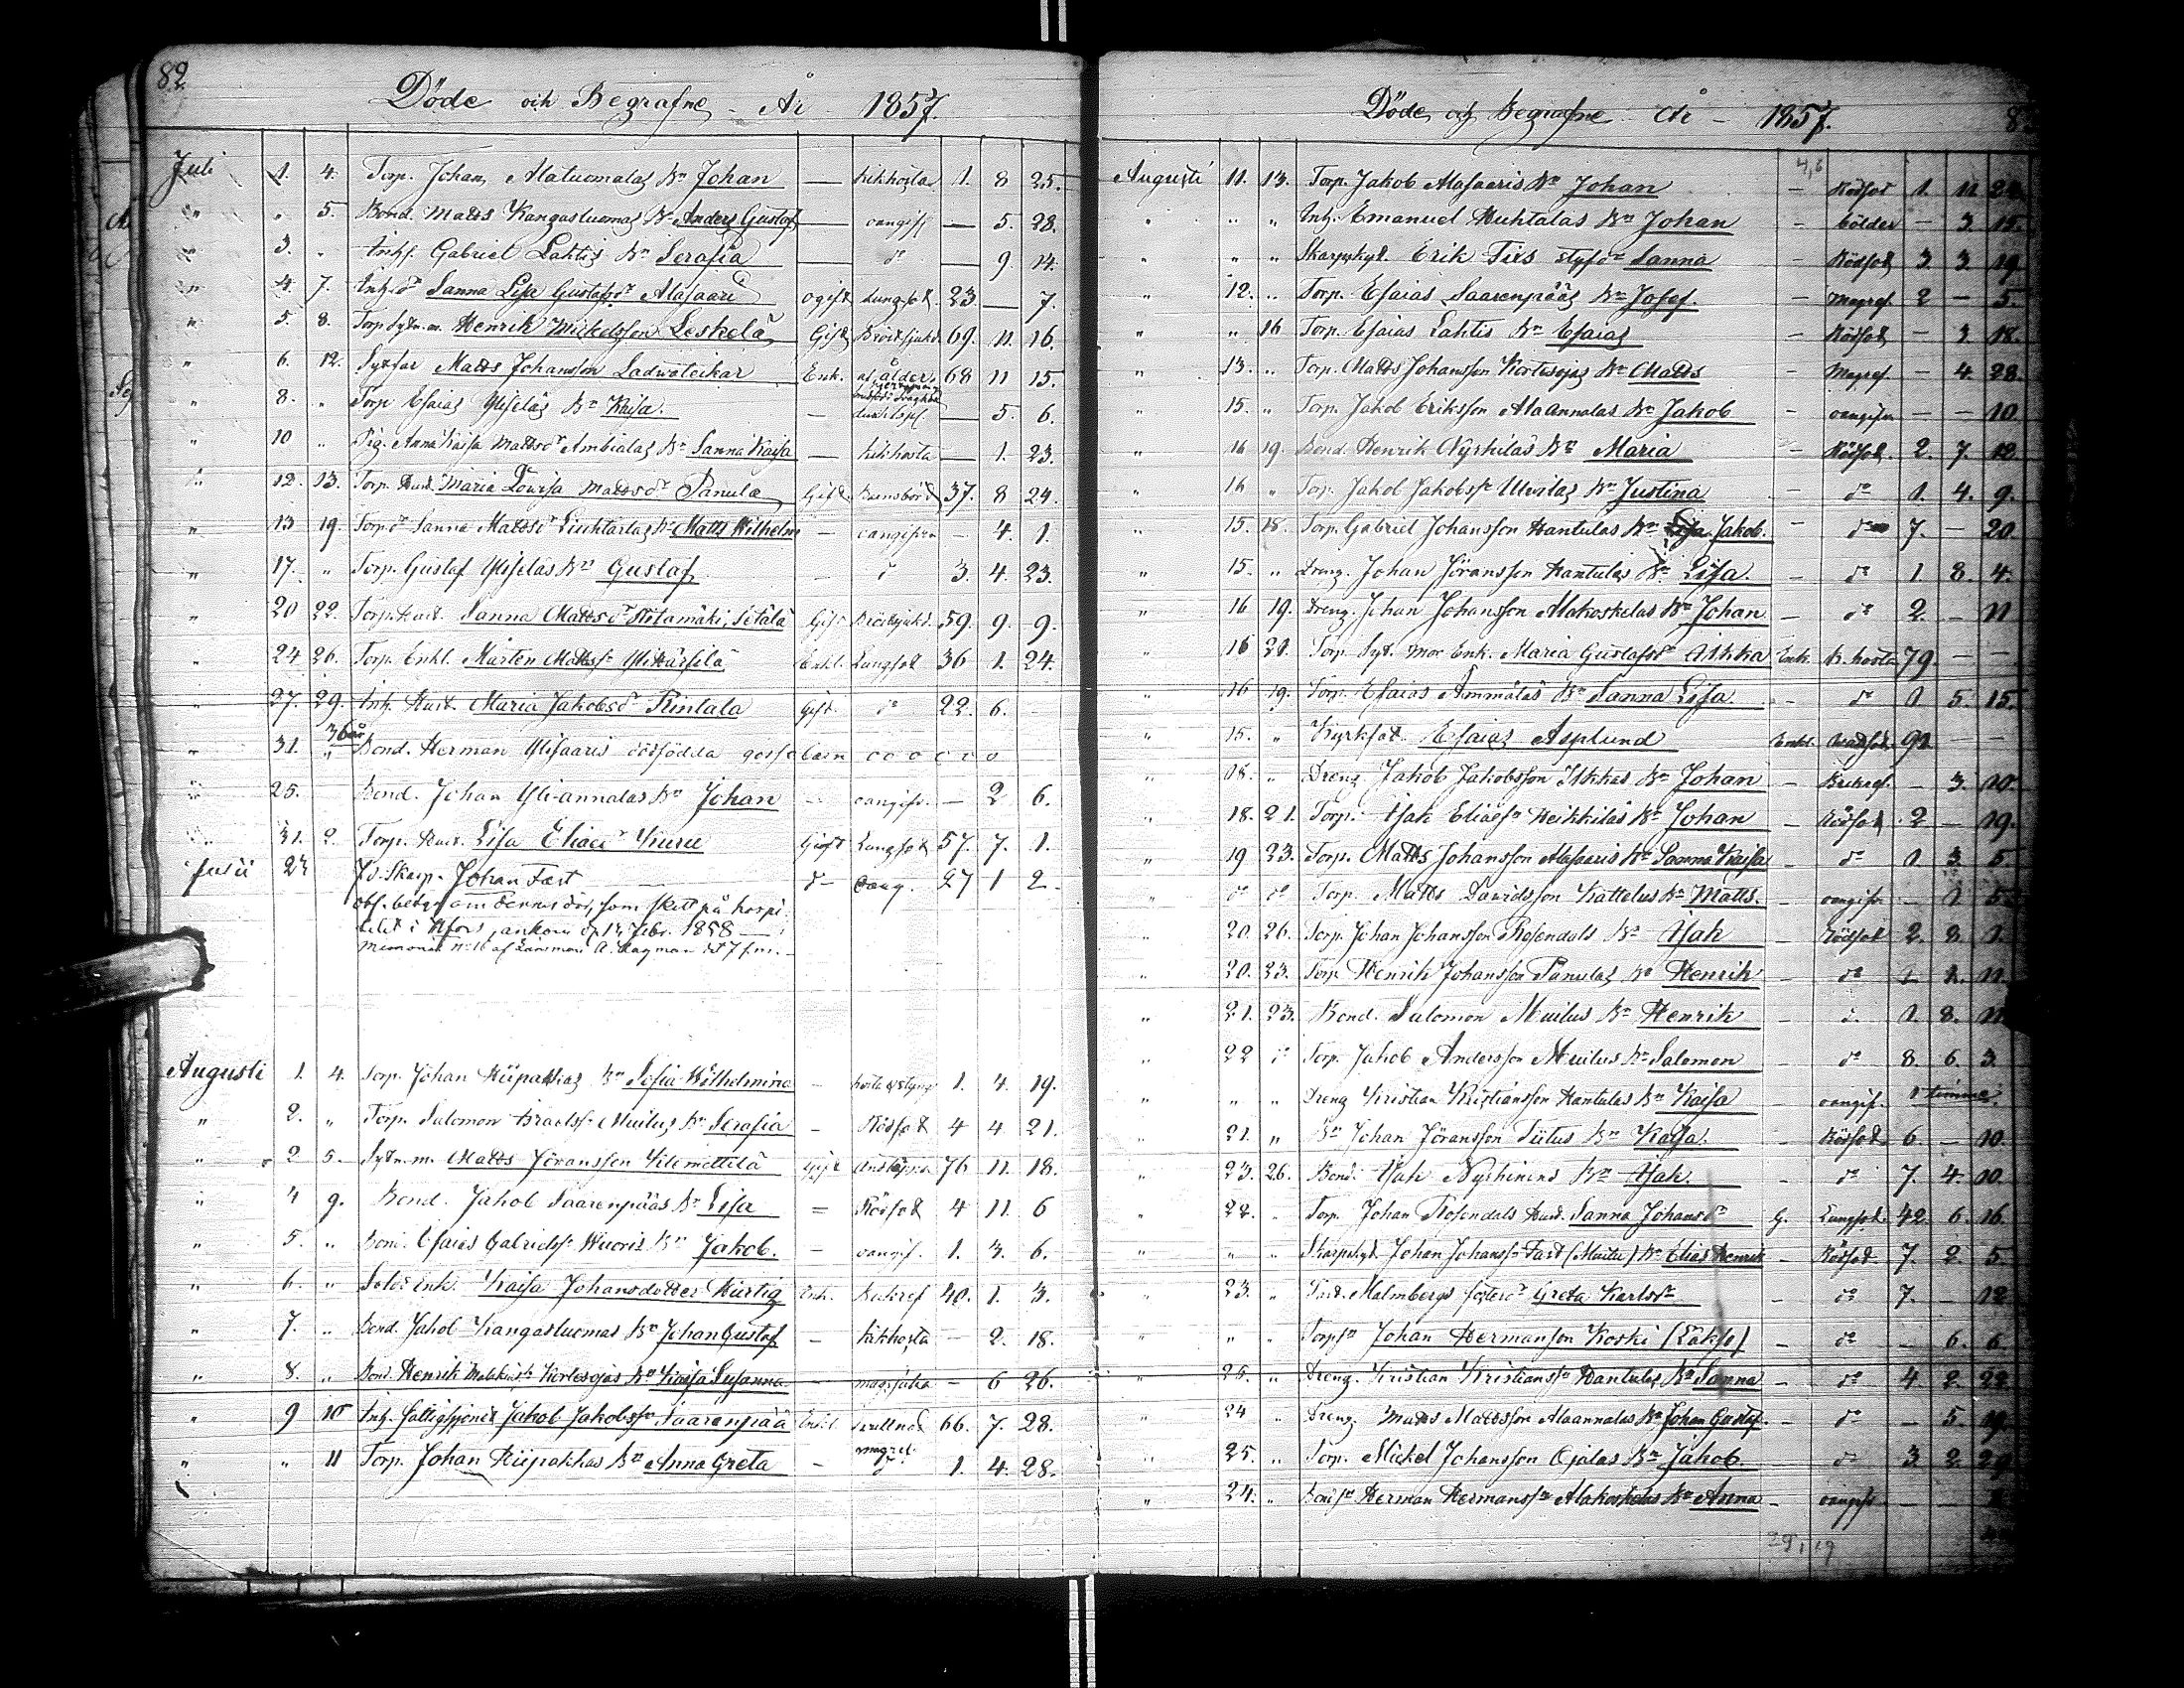 82
Döde och Begrafne - År 1857.
Juli 1. 4. Torp. Johan Alatuomalas Bn Johan — kikhosta 1. 8 25.
" " 5. Bond. Matts Kangasluomas Bn Anders Gustaf — oangifv — 5. 28.
" 3. " Inhs. Gabriel Lahtis Bn Serafia — do — 9. 14.
" 4. 7. Inh. dr Sanna Lisa Gustafsdr Alasaari ogift Lungsot 23 — 7.
" 5. 8. Torp. Sytn.m. Henrik Mickelsson Leskelä Gift Bröstsjukd. 69. 11. 16.
" 6. 12. Sytfar Matts Johansson Ladwateikar Enk. af ålder 68 11 15.
" 8. " Torp Esaias Yliseläs Bn Kaisa. — 5. 6.
" 10 " Pig. Anna Kaisa Mattsdr Ambialas Bn Sanna Kaisa — kikhosta — 1. 23.
" 12. 13. Torp. Hust. Maria Lovisa Mattsdr Panula Gift. Barnsbörd 37. 8 24.
" 13 19. Torp.dr Sanna Mattsdr Luhtalas Bn Matts Wilhelm — oangifven — 4. 1.
" 17. " Torp. Gustaf Yliseläs Bn Gustaf — d 3. 4. 23.
" 20 22. Torp. Hust. Sanna Mattsdr Hötamäki, Sitälä Gift Bröstsjukd. 59. 9. 9.
" 24 26. Torp. Enkl. Mårten Mattss. Yli Härsilä Enkl. Lungsot 36 1. 24.
" 27. 29. Inh. Hust. Maria Jakobsdr Rintala Gift. do 22. 6. -
" 31. " Bond. Herman Ylisaaris dödfödda gossebarn o o o o o
" 25. Bond. Johan Yli-annalas Bn Johan - oangifv. — 2 6.
" 31. 2. Torp. Hust. Lisa Eliaedr Kuru Gift Lungsot 57. 7. 1.
Junii 27 Fd. Skarp. Johan Fast d- oang. 27 1 2.
obs. betyg om dennes död, som skett på hospi-
talet i Hfors, ankom d. 14 Febr. 1858 —
Memorial No 16 af Länsman A. Hagman d 7 f.m.
Augusti 1. 4. Torp. Johan Hiipakkas Bn Sofia Wilhelmina - hosta o styng 1. 4. 19.
" 2. " Torp. Salomon Israelss. Muilus Bn Serafia - Rödsot 4 4. 21.
" 2 5. Sytn.m. Matts Jöransson Ylimettilä Gift Anstöfna 76 11. 18.
" 4 9. Bond. Jakob Saarenpääs Bn Lisa - Rödsot 4 11. 6
" 5. " Bond. Esaias Gabrielss. Wuoris Bn Jakob. - oangif. 1. 3. 6.
" 6. " Sold. Enk. Kaisa Johansdotter Kurtig Enk. Brikref 40. 1. 3.
" 7. " Bond. Jakob Kangasluomas Bn Johan Gustaf - kikhosta - 2. 18.
" 8. " Bond. Henrik Kortesojas Bn Kaisa Susanna - magsjuka - 6 26.
" 9 10 Inh. fattighjonet Jakob Jakobsson Saarenpää Enkl. swullnad 66. 7. 28.
" " 11 Torp. Johan Hiipakkas Bn Anna Greta - magref. 1. 4. 28.
Döde och Begrafne År - 1857. 8
4,6
Augusti 11. 13. Torp. Jakob Alasaaris Bn Johan - Rödsot 1. 11. 24.
" " " Inh. Emanuel Huhtalas Bn Johan - bölder - 3. 15.
" " " Skarpskyt. Erik Firs styfdr Sanna - Rödsot 3. 3. 19.
" 12. " Torp. Esaias Saarenpääs Bn Josef. - Magref. 2 - 5.
" " 16 Torp. Esaias Lahtis Bn Esaias - Rödsot - 3. 18.
" 13. " Torp. Matts Johansson Kortesojas Bn Matts - Magref. - 4. 28.
" 15. " Torp. Jakob Eriksson Alaannalas Bn Jakob - oangifv. - - 10
" 16 19. Bond. Henrik Nyrhiläs Bn Maria - Rödsot. 2. 7. 12.
" 16 " Torp. Jakob Jakobss. Ulvilas Bn Justina - do 1. 4. 9.
" 15. 18. Torp. Gabriel Johansson Hantulas Bn Jakob. - do 7. - 20
" 15. " Dreng. Johan Jöransson Hantulas Bn Lisa. - do 1. 8. 4.
" 16 19. Dreng. Johan Johansson Alakoskelas Bn Johan - do 2. - 11
" 16 20. Torp. Syt. mor Enk. Maria Gustafsdr Ilkka Enk. K. hosta 79. - -
" 16 19. Torp. Esaias Ammäläs Bn Sanna Lisa. - do 1 5. 15.
" 15. " Kyrkfat. Esaias Asplund Enkl. 91 - -
" 18. " Dreng Jakob Jakobsson Ilkkas Bn Johan - Brikref. - 3. 10.
" 18. 21. Torp. Isak Eliaesn Heikkiläs Bn Johan - Rödsot 2 - 19.
" 19 23. Torp. Matts Johansson Alasaaris Bn Sanna Kaisa - do 1 3. 5
" do do Torp. Matts Davidsson Kattelus Bn Matts. - oangifv. - 1. 5
" 20. 26. Torp. Johan Johansson Rosendals Bn Isak - Rödsot 2. 8. 1.
" 20. 23. Torp. Henrik Johansson Panulas Bn Henrik - do 1. 11.
" 21. 23. Bond. Salomon Muilus Bn Henrik - d. 1. 8. 11
" 22 d Torp. Jakob Andersson Muilus Bn Salomon - do 8. 6. 3.
" " " Dreng Kristian Kristiansson Hantulas Bn Kaisa - oangif. 1 timme.
" 21. " Bn Johan Jöransson Tiitus Bn Kaisa. - Rödsot 6. - 10.
" 23. 26. Bond. Isak Nyrhinens Bn Isak. - do 7. 4. 10.
" 22. " Torp. Johan Rosendals Hust. Sanna Johansdr G. Lungsot. 42. 6. 16.
" " " Skarpskyt. Johan Johanss. Fast (Muilu) Bn Elias Henrik - Rödsot 7. 2. 5.
" 23. " Malmbergs fosterdr Greta Karlsdr - do 7. - 12
" " " Torpsn Johan Hermansson Koski (Laksо) - do - 6. 6
" 25. " Dreng. Kristian Kristianss. Hantulas Bn Sanna - do 4 2. 22
" 24 " Dreng Matts Mattsson Alaannalas Bn Johan Gustaf. - do - 5. 19.
" 25. " Torp. Mickel Johansson Ojalas Bn Jakob - do 3. 2. 29
" 24. " Bondsn Herman Hermanss. Alakoskelas Bn Anna - oangifv
29, 19